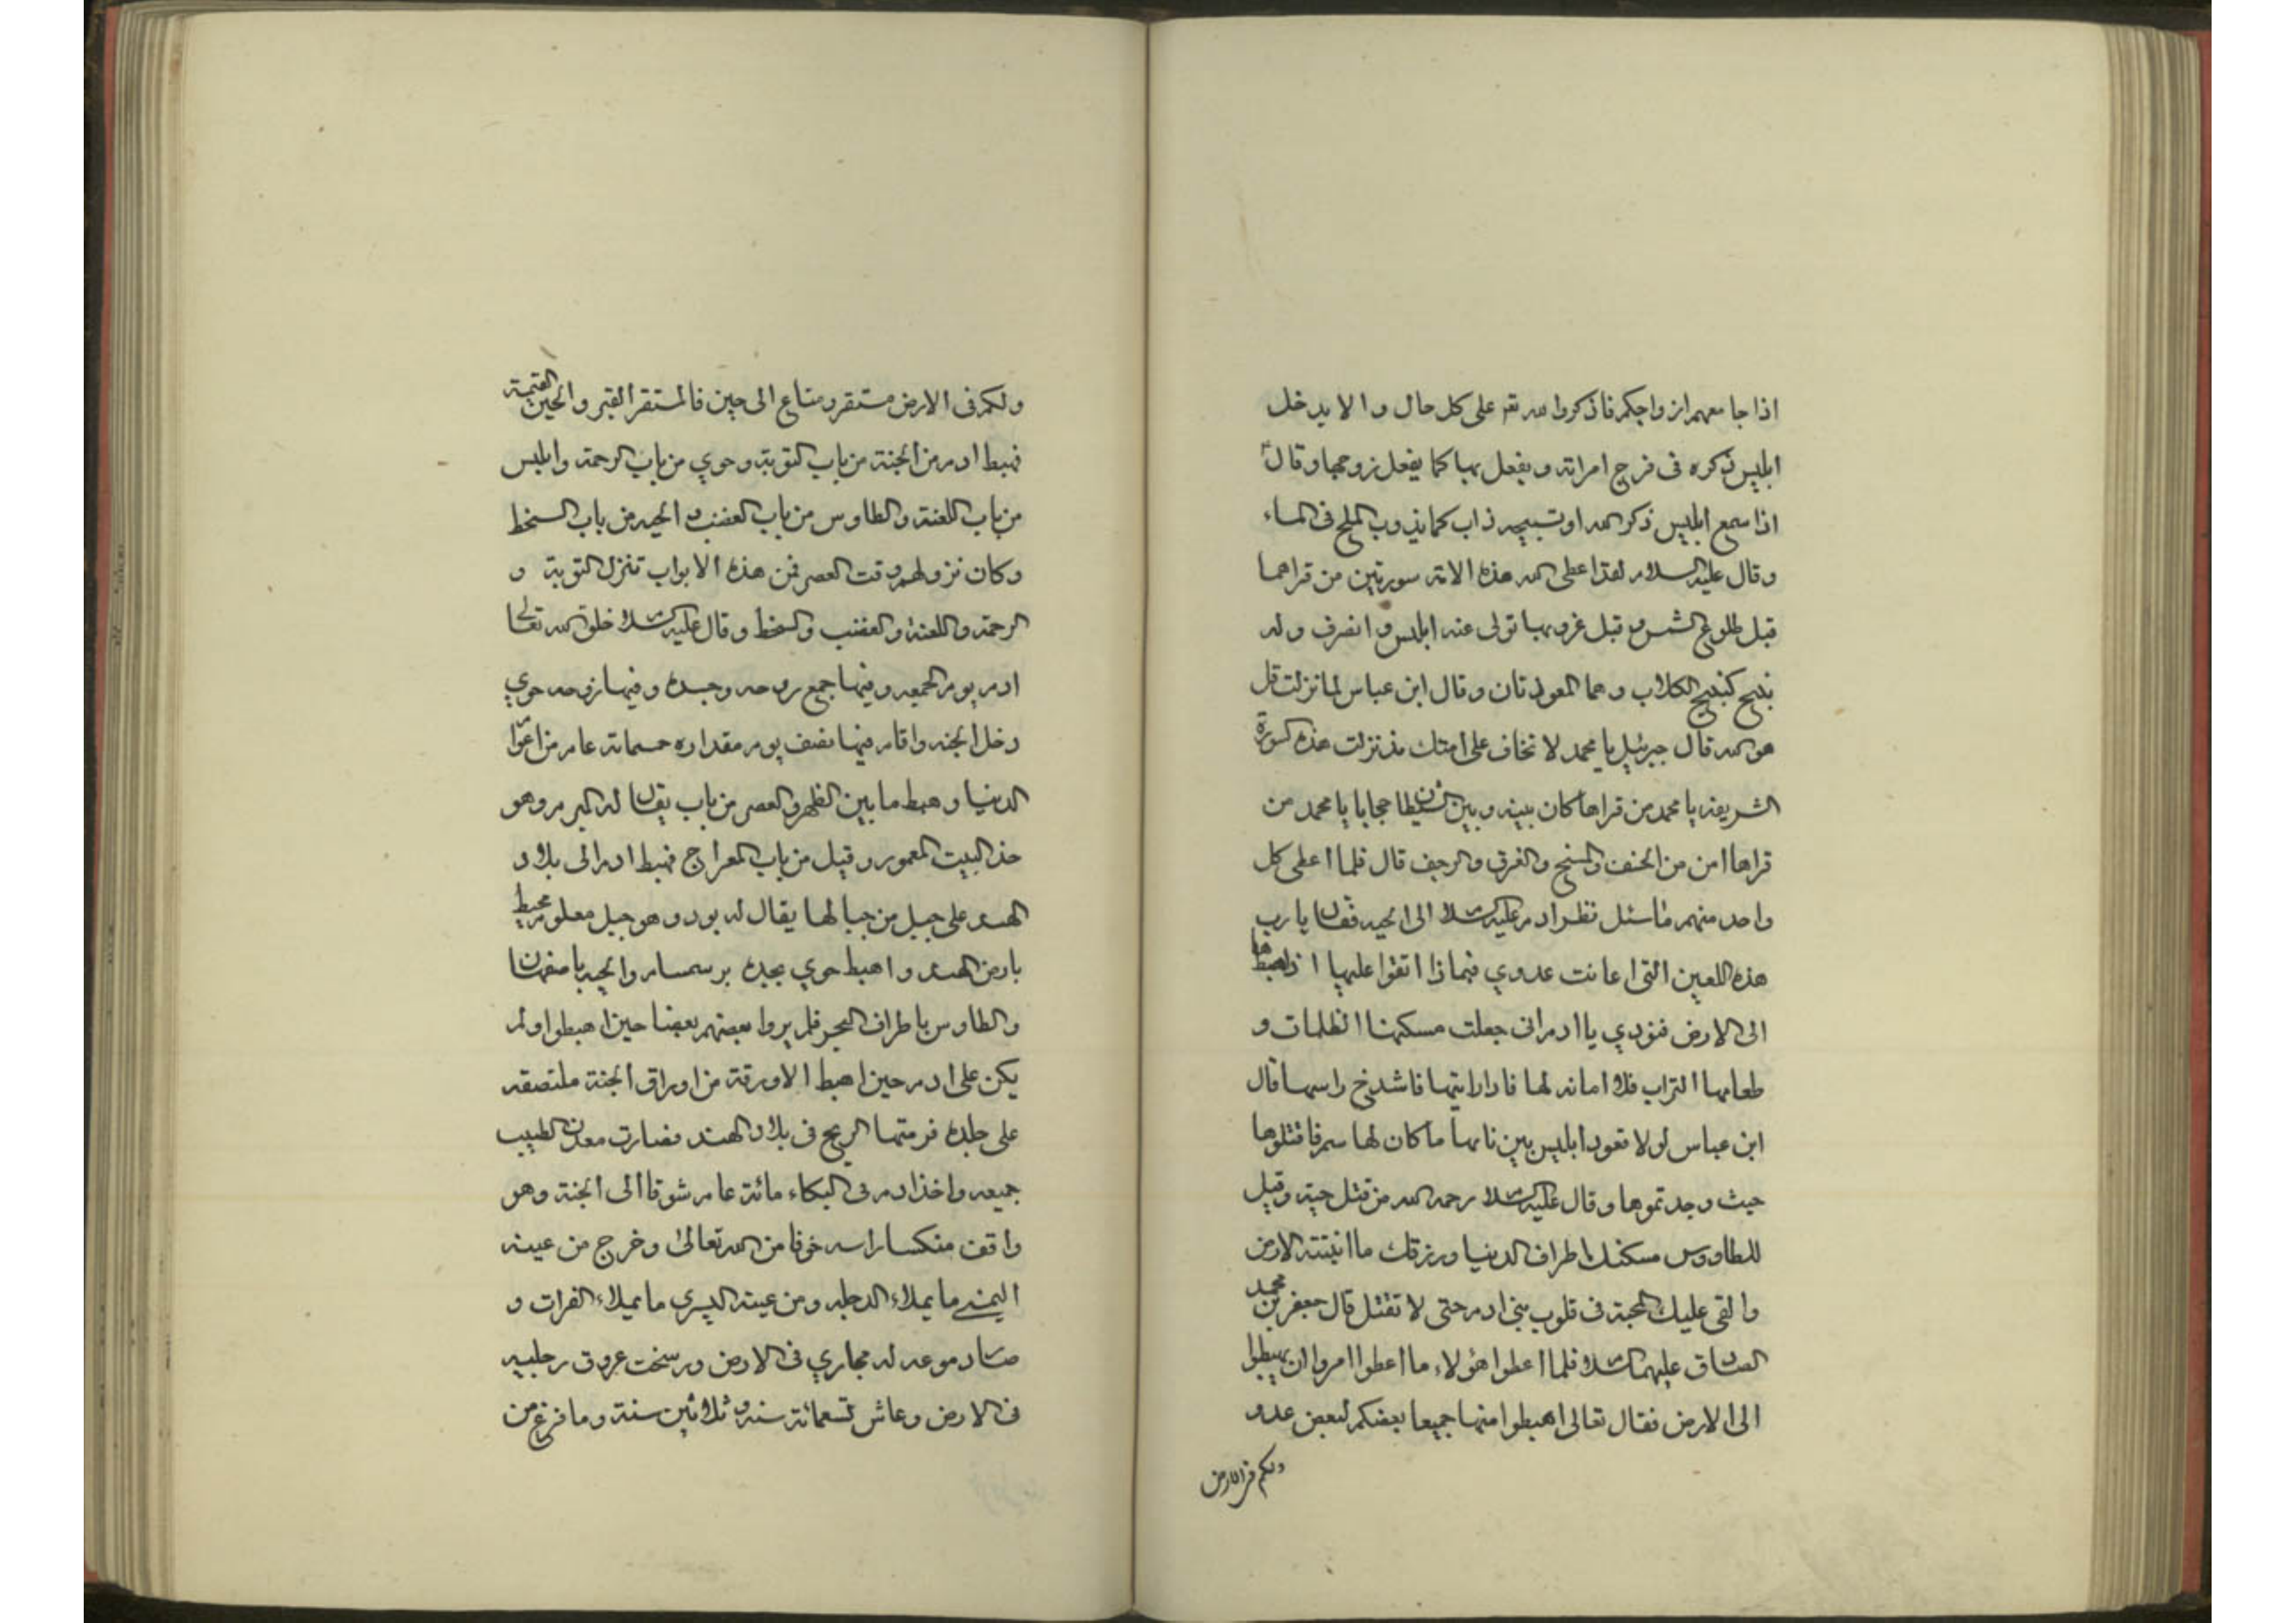 اذا جا معهم ازواجكم فاذكروا الله تع على كل حال والا يدخل
ابليس ذكره فى فرج امراته ويفعل بها كما يفعل زوجها وقال
اذا سمع ابليس ذكر الله او تسبيحه ذاب كما يذوب الملح فى الماء
وقال عليه السلام لقد اعطى الله هذه الامة سورتين من قراهما
قبل طلوع الشمس وقبل غروبها تولى عنه ابليس وانصرف وله
نبيح كنبيح الكلاب وهما المعوذتان وقال ابن عباس لما نزلت قل
هو الله قال جبرئيل يا محمد لا تخاف على امتك مذ نزلت هذه السورة
الشريفة يا محمد من قراها كان بينه وبين الشيطان حجابا يا محمد من
قراها امن من الخسف والمسخ والغرق والرجف قال فلما اعطى كل
واحد منهم ما سئل نظر ادم عليه السلام الى الحيه فقال يا رب
هذه اللعين التى اعانت عدوي فبماذا اتقوا عليها اذا اهبطها
الى الارض فنودي يا ادم انى جعلت مسكنها الظلمات و
طعامها التراب فلا امانه لها فاذا رايتها فاشدخ راسها قال
ابن عباس لولا قعود ابليس بين نابها ما كان لها سم فاقتلوها
حيث وجدتموها وقال عليه السلام رحم الله من قتل حية وقيل
للطاووس مسكنك اطراف الدنيا ورزقك ما انبتته الارض
والقى عليك المحبة فى قلوب بنى ادم حتى لا تقتل قال جعفر بن محمد
الصادق عليهما السلام فلما اعطوا هؤلاء ما اعطوا امروا ان يهبطوا
الى الارض فقال تعالى اهبطوا منها جميعا بعضكم لبعض عدو
ولكم فى الارض
ولكم فى الارض مستقر ومتاع الى حين فالمستقر القبر والحين القيمة
فهبط ادم من الجنة من باب التوبة وحوي من باب الرحمة وابليس
من باب اللعنة والطاوس من باب الغضب والحيه من باب السخط
وكان نزولهم وقت العصر فمن هذه الابواب تنزل التوبة و
الرحمة واللعنة والغضب والسخط وقال عليه السلام خلق الله تعالى
ادم يوم الجمعه وفيها جمع روحه وجسده وفيها زوجه حوي
دخل الجنه واقام فيها نصف يوم مقداره خسمائة عام من اعوام
الدنيا وهبط ما بين الظهر والعصر من باب يقال له المبرم وهو
حذ البيت المعمور وقيل من باب المعراج فهبط ادم الى بلاد
الهند على جبل من جبالها يقال له بود وهو جبل معلوم محيط
بارض الهند واهبط حوي بجده والحيه باصفهان
والطاوس باطراف البحر فلم يروا بعضهم بعضا حين اهبطوا ولم
يكن على ادم حين اهبط الا ورقة من اوراق الجنة ملتصقه
على جلده فرمتها الريح فى بلاد الهند فصارت معدن الطيب
جميعه واخذ ادم فى البكاء مائة عام شوقا الى الجنة وهو
واقف منكسا راسه خوفا من الله تعالى وخرج من عينه
اليمنى ما يملاء الدجله ومن عينه اليسرى ما يملاء الفرات و
صار دموعه له مجاري فى الارض ورسخت عروق رجليه
فى الارض وعاش تسعمائة سنة وثلاثين سنة وما فرغ من